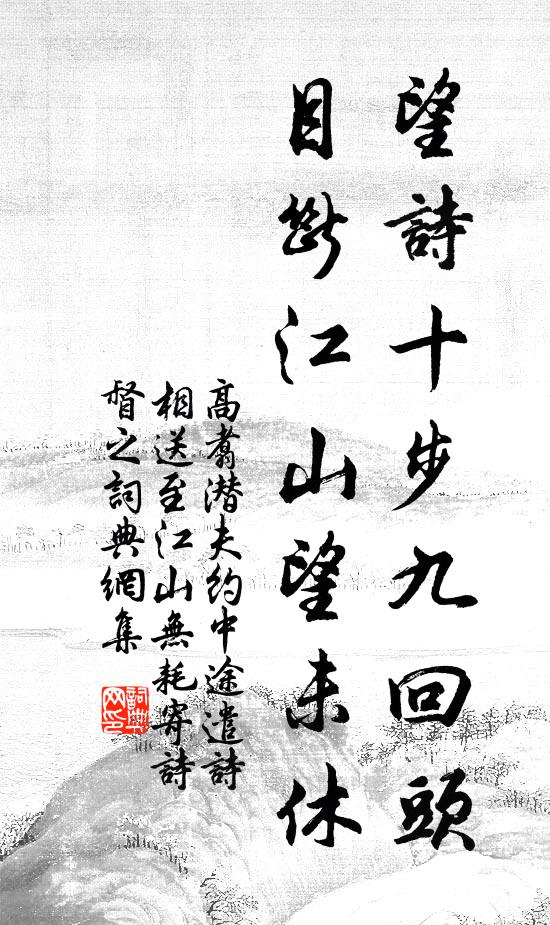 望詩十步九回頭
目斷江山望未休
高翥潛夫約中途遣詩
相送至江山無耗寄詩
督之詞典網集
詞典
网印